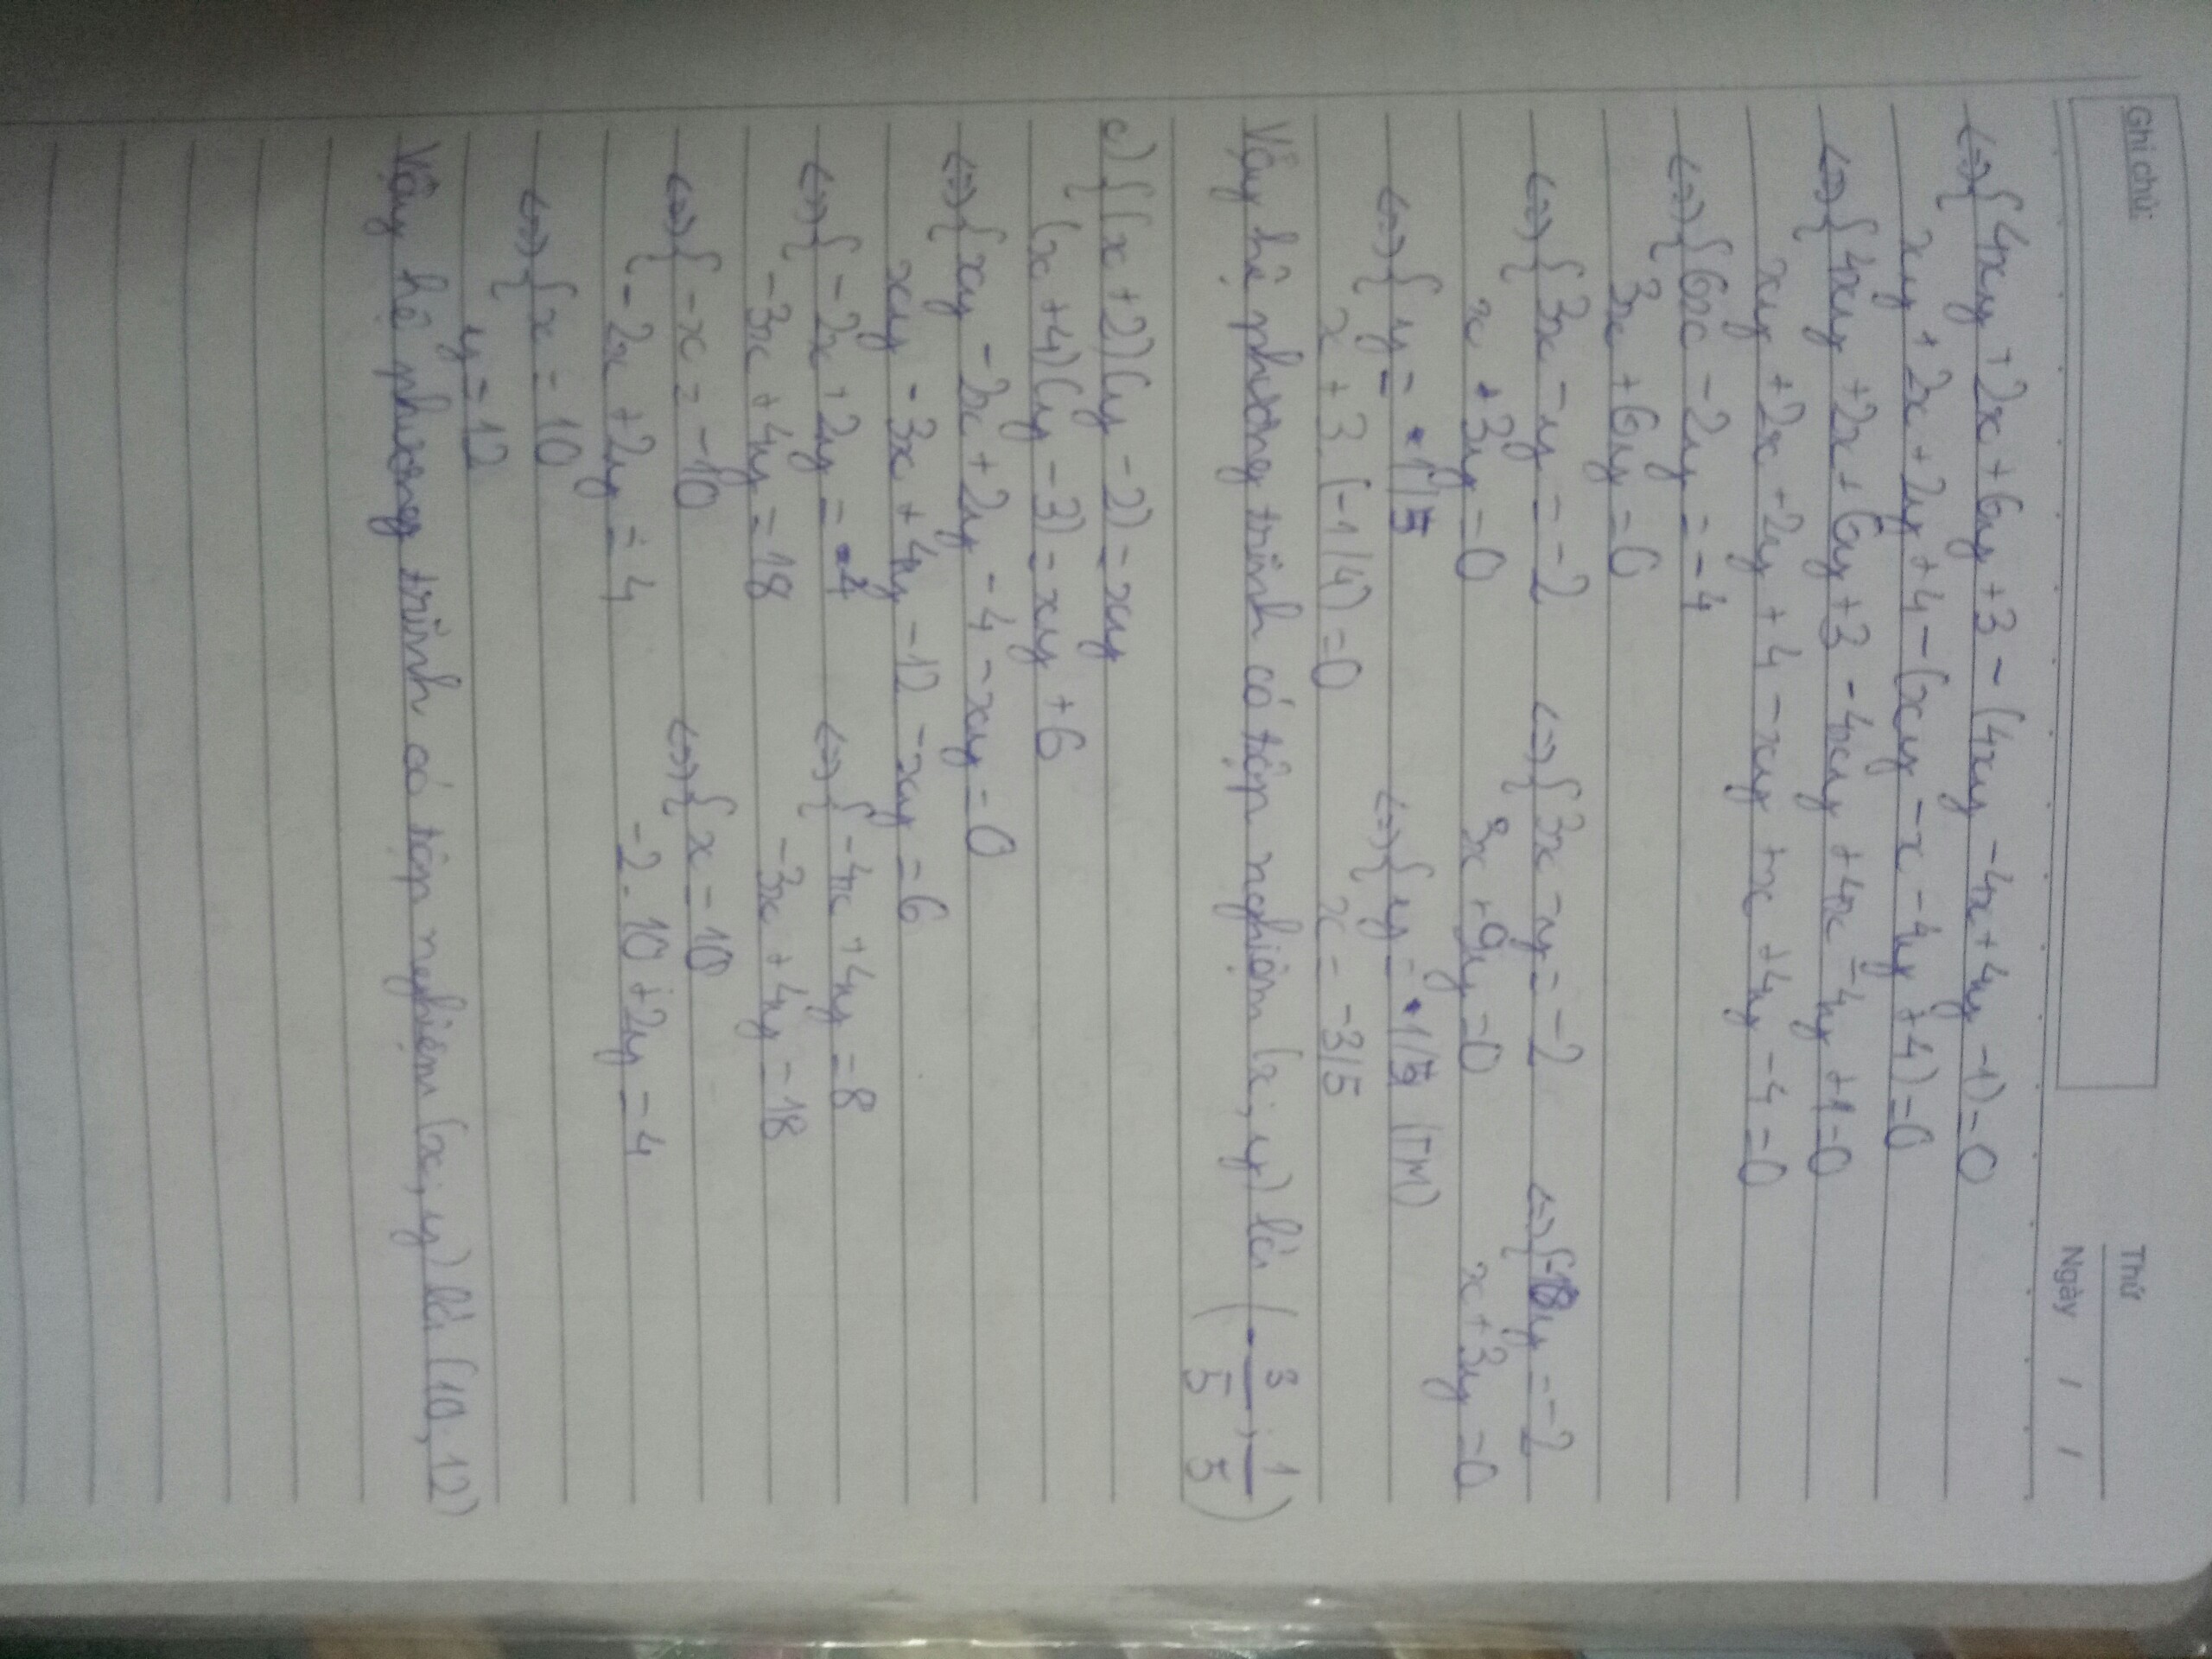 Ghi chú:
Thứ
Ngày / /
<=> { 4xy + 2x + 6y + 3 - (4xy - 4x + 4y - 1) = 0
xy + 2x + 2y + 4 - (xy - x - 4y + 4) = 0
<=> { 4xy + 2x + 6y + 3 - 4xy + 4x - 4y + 1 = 0
xy + 2x + 2y + 4 - xy + x + 4y - 4 = 0
<=> { 6x - 2y = -4
3x + 6y = 0
<=> { 3x - y = -2 <=> { 3x - y = -2 <=> { -10y = -2
x + 3y = 0 3x + 9y = 0 x + 3y = 0
<=> { y = 1/5 <=> { y = 1/5 (TM)
x + 3.(-1/4) = 0 x = -3/5
Vậy hệ phương trình có tập nghiệm (x; y) là (-3/5; 1/5)
c) { (x + 2)(y - 2) = xy
(x + 4)(y - 3) = xy + 6
<=> { xy - 2x + 2y - 4 - xy = 0
xy - 3x + 4y - 12 - xy = 6
<=> { -2x + 2y = 4 <=> { -4x + 4y = 8
-3x + 4y = 18 -3x + 4y = 18
<=> { -x = -10 <=> { x = 10
-2x + 2y = 4 -2.10 + 2y = 4
<=> { x = 10
y = 12
Vậy hệ phương trình có tập nghiệm (x; y) là (10, 12)